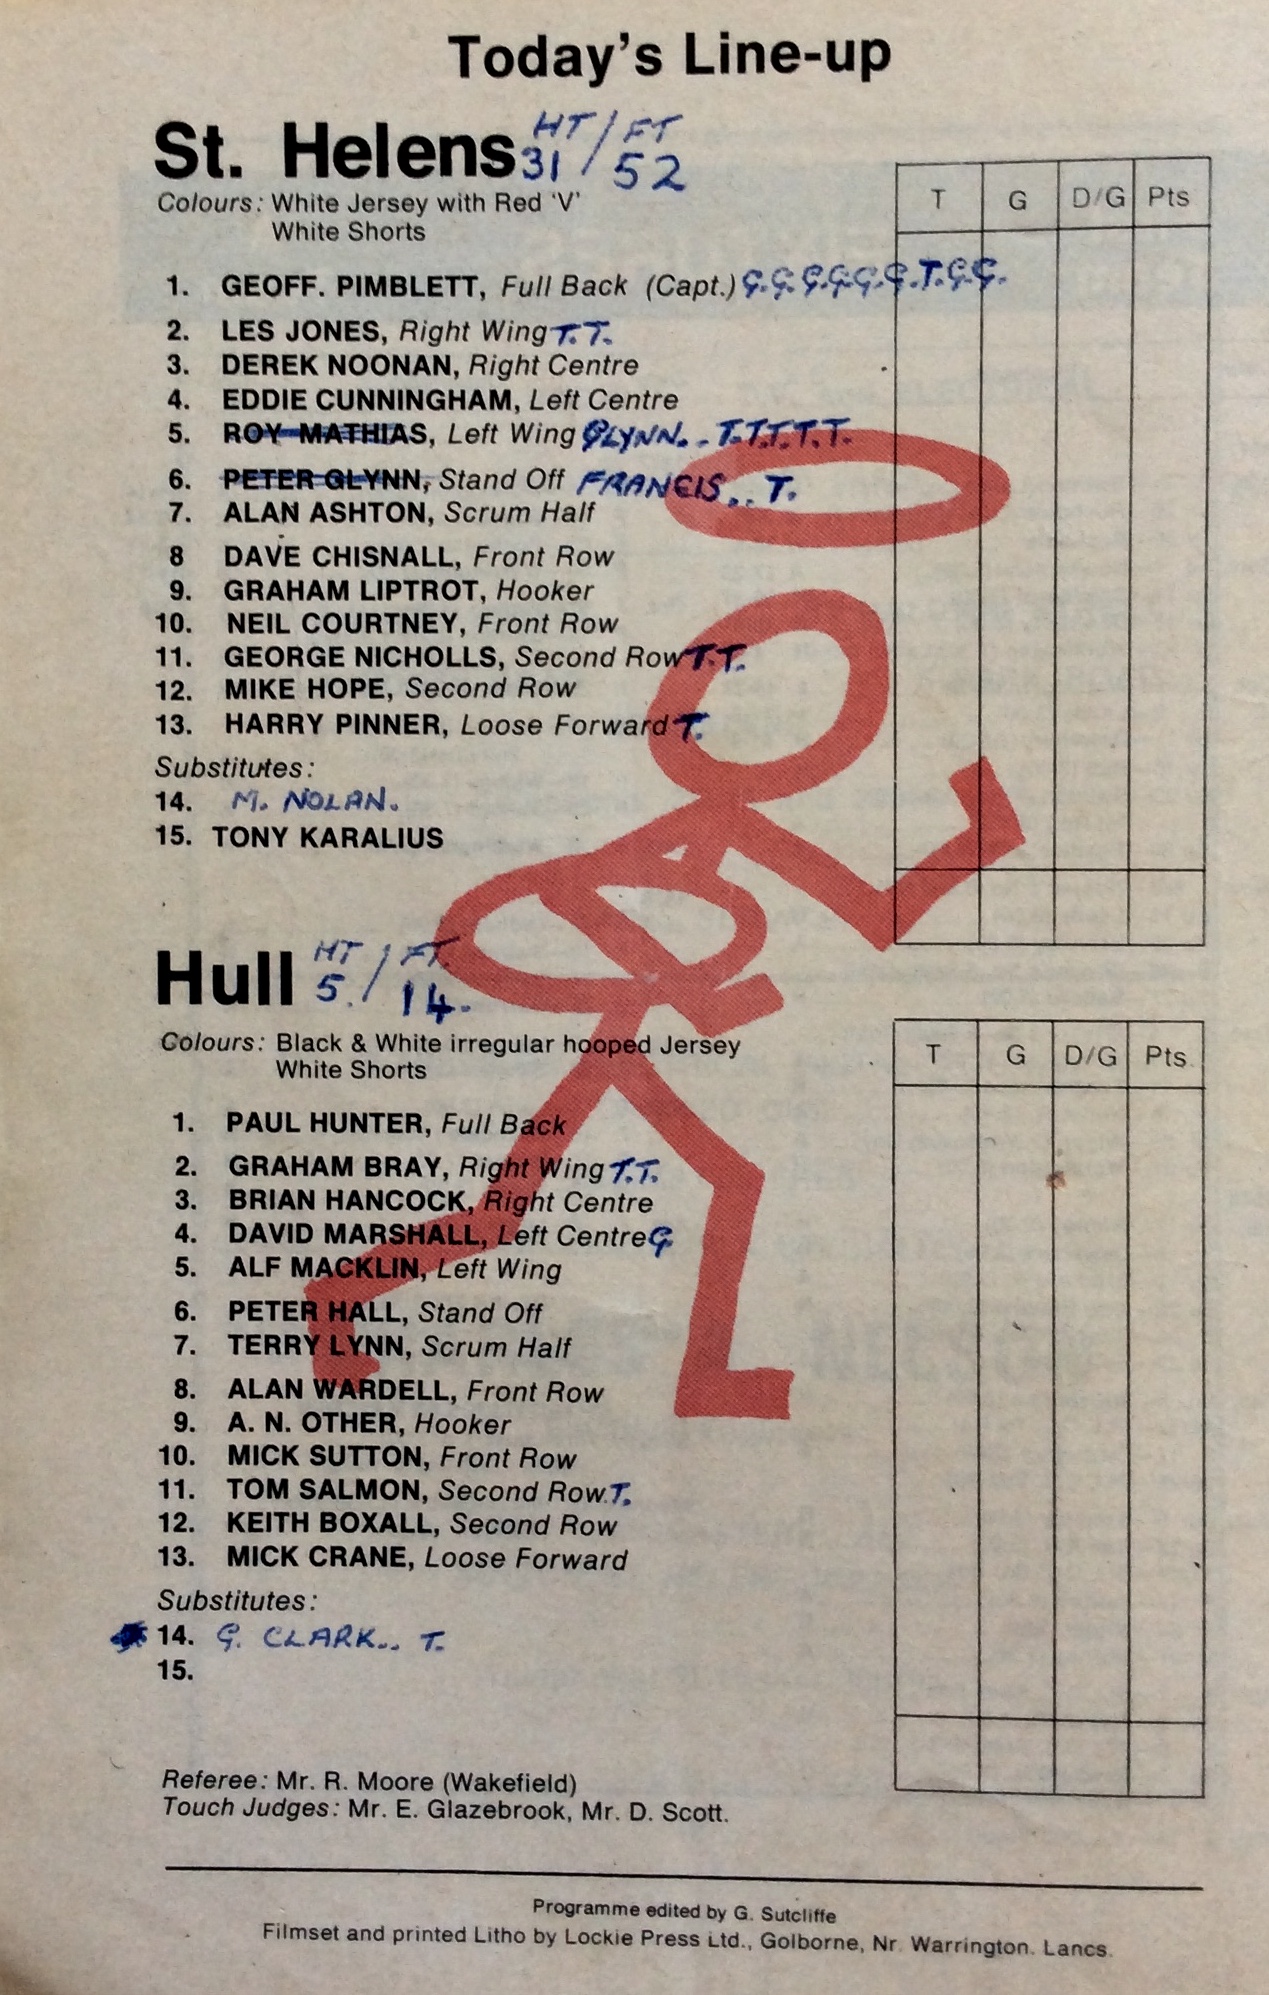 Today's Line-up
St. Helens HT / FT
31 / 52
Colours: White Jersey with Red 'V'
White Shorts
T G D/G Pts
1. GEOFF. PIMBLETT, Full Back (Capt.) G.G.G.G.G.G.T.G.G.
2. LES JONES, Right Wing T.T.
3. DEREK NOONAN, Right Centre
4. EDDIE CUNNINGHAM, Left Centre
5. ROY MATHIAS, Left Wing GLYNN.. T.T.T.T.T.
6. PETER GLYNN, Stand Off FRANCIS.. T.
7. ALAN ASHTON, Scrum Half
8 DAVE CHISNALL, Front Row
9. GRAHAM LIPTROT, Hooker
10. NEIL COURTNEY, Front Row
11. GEORGE NICHOLLS, Second Row T.T.
12. MIKE HOPE, Second Row
13. HARRY PINNER, Loose Forward T.
Substitutes:
14. M. NOLAN.
15. TONY KARALIUS
Hull HT / FT.
5. / 14.
Colours: Black & White irregular hooped Jersey
White Shorts
T G D/G Pts.
1. PAUL HUNTER, Full Back
2. GRAHAM BRAY, Right Wing T.T.
3. BRIAN HANCOCK, Right Centre
4. DAVID MARSHALL, Left Centre G
5. ALF MACKLIN, Left Wing
6. PETER HALL, Stand Off
7. TERRY LYNN, Scrum Half
8. ALAN WARDELL, Front Row
9. A. N. OTHER, Hooker
10. MICK SUTTON, Front Row
11. TOM SALMON, Second Row T.
12. KEITH BOXALL, Second Row
13. MICK CRANE, Loose Forward
Substitutes:
14. G. CLARK.. T.
15.
Referee: Mr. R. Moore (Wakefield)
Touch Judges: Mr. E. Glazebrook, Mr. D. Scott.
Programme edited by G. Sutcliffe
Filmset and printed Litho by Lockie Press Ltd., Golborne, Nr. Warrington. Lancs.